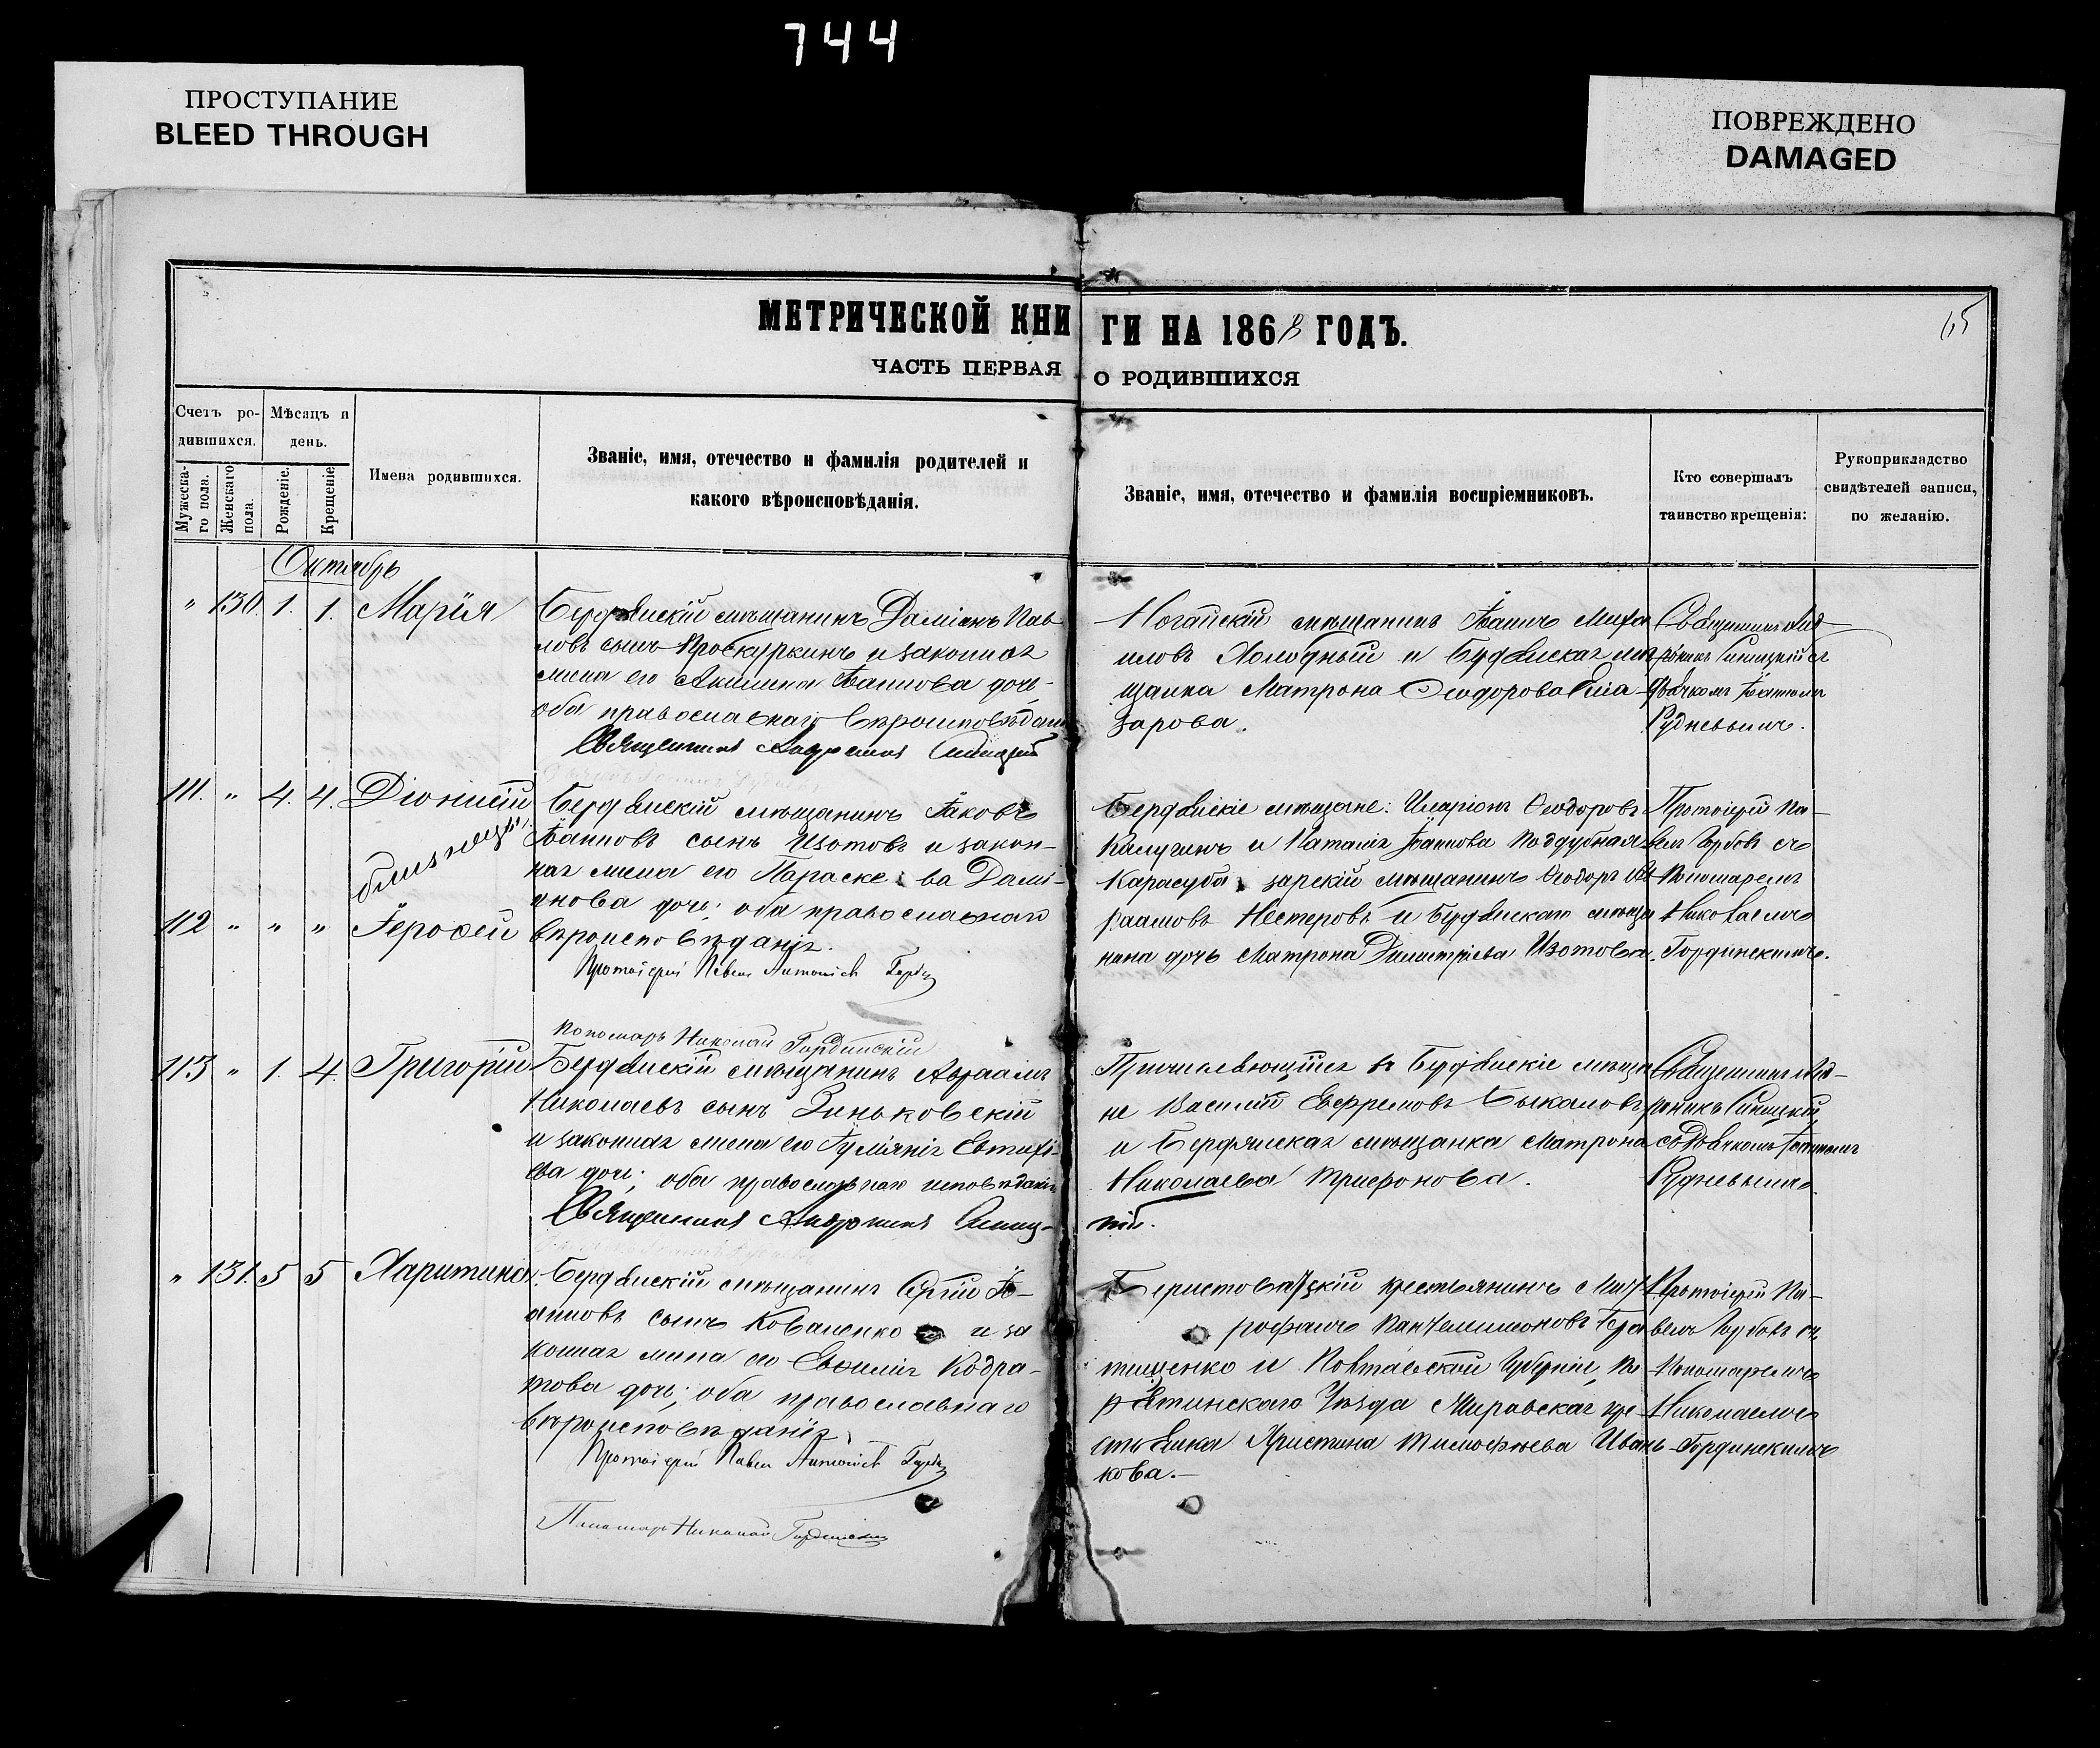 744
ПРОСТУПАНИЕ
BLEED THROUGH
ПОВРЕЖДЕНО
DAMAGED
65
МЕТРИЧЕСКОЙ КНИ ГИ НА 1868 ГОДЪ.
ЧАСТЬ ПЕРВАЯ О РОДИВШИХСЯ
Счетъ ро-
дившихся.
Мужеска-
го пола.
Женскаго
пола.
Мѣсяцъ и
день.
Рожденіе.
Крещеніе
Имена родившихся.
Званіе, имя, отечество и фамилія родителей и
какого вѣроисповѣданія.
Званіе, имя, отечество и фамилія воспріемниковъ.
Кто совершалъ
таинство крещенія:
Рукоприкладство
свидѣтелей записи,
по желанію.
Октябрь
" 130. 1. 1. Марія
Бердянскій мѣщанинъ Даміанъ Пав
ловъ сынъ Проскуркинъ и законная
жена его Акилина Іоаннова дочь
оба православнаго вѣроисповѣданія
Священникъ Андроникъ Синицкій
Ногайскій мѣщанинъ Іоаннъ Миха
иловъ Холодный и Бердянская мѣ
щанка Матрона Ѳеодорова Елиа
зарова.
Священникъ Анд
роникъ Синицкій съ
Дьячкомъ Іоанномъ
Рудневымъ.
111. " 4. 4. Діонисій
близнецы
112 " " " Іероѳей
Бердянскій мѣщанинъ Іаковъ
Іоанновъ сынъ Изотовъ и закон-
ная жена его Параскева Дамі-
анова дочь; оба православнаго
вѣроисповѣданія.
Протоіерей Павелъ
Пономарь Николай Гординскій
Бердянскіе мѣщане: Иларіонъ Ѳеодоровъ
Калугинъ и Наталія Іоаннова Поддубная
Карасубазарскій мѣщанинъ Ѳеодоръ Ав
раамовъ Нестеровъ и Бердянскаго мѣща
нина дочь Матрона Димитріева Изотова.
Протоіерей Па-
велъ съ
Пономаремъ
Николаемъ
Гординскимъ.
113 " 1. 4. Григорій
Бердянскій мѣщанинъ Авраамъ
Николаевъ сынъ Зиньковскій
и законная жена его Евтихі-
ева дочь; оба православнаго исповѣданія
Священникъ Андроникъ Синиц-
кій.
Причисляющійся въ Бердянскіе мѣща
не Василій Ефремовъ Быкаловъ
и Бердянская мѣщанка Матрона
Николаева Трифонова.
Священникъ Анд-
роникъ Синицкій
съ Дьячкомъ Іоанномъ
Рудневымъ.
" 131. 5 5 Харитина
Бердянскій мѣщанинъ Сергій Іо-
анновъ сынъ Коваленко и за
конная жена его Евфимія Кодра-
това дочь; оба православнаго
вѣроисповѣданія
Протоіерей Павелъ
Пономарь Николай Гординскій
крестьянинъ Мит
рофанъ Пантелимоновъ
тищенко и Полтавской Губерніи, Пи
рятинскаго Уѣзда кре-
стьянка Христина Тимофѣева Ивань-
кова.
Протоіерей Па-
велъ съ
Пономаремъ
Николаемъ
Гординскимъ